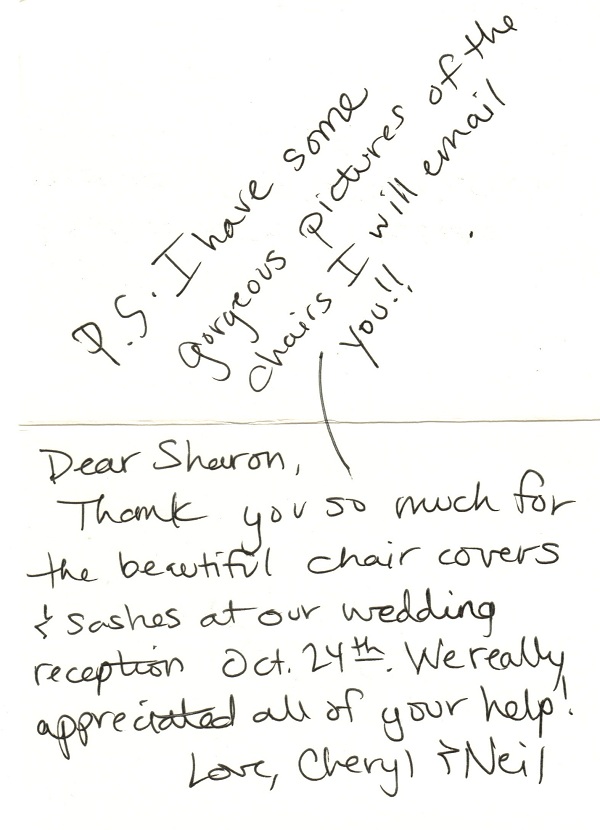 P.S. I have some
gorgeous pictures of the
chairs I will email
you!!
Dear Sharon,
Thank you so much for
the beautiful chair covers
& sashes at our wedding
reception Oct. 24th. We really
appreciated all of your help!
Love, Cheryl & Neil